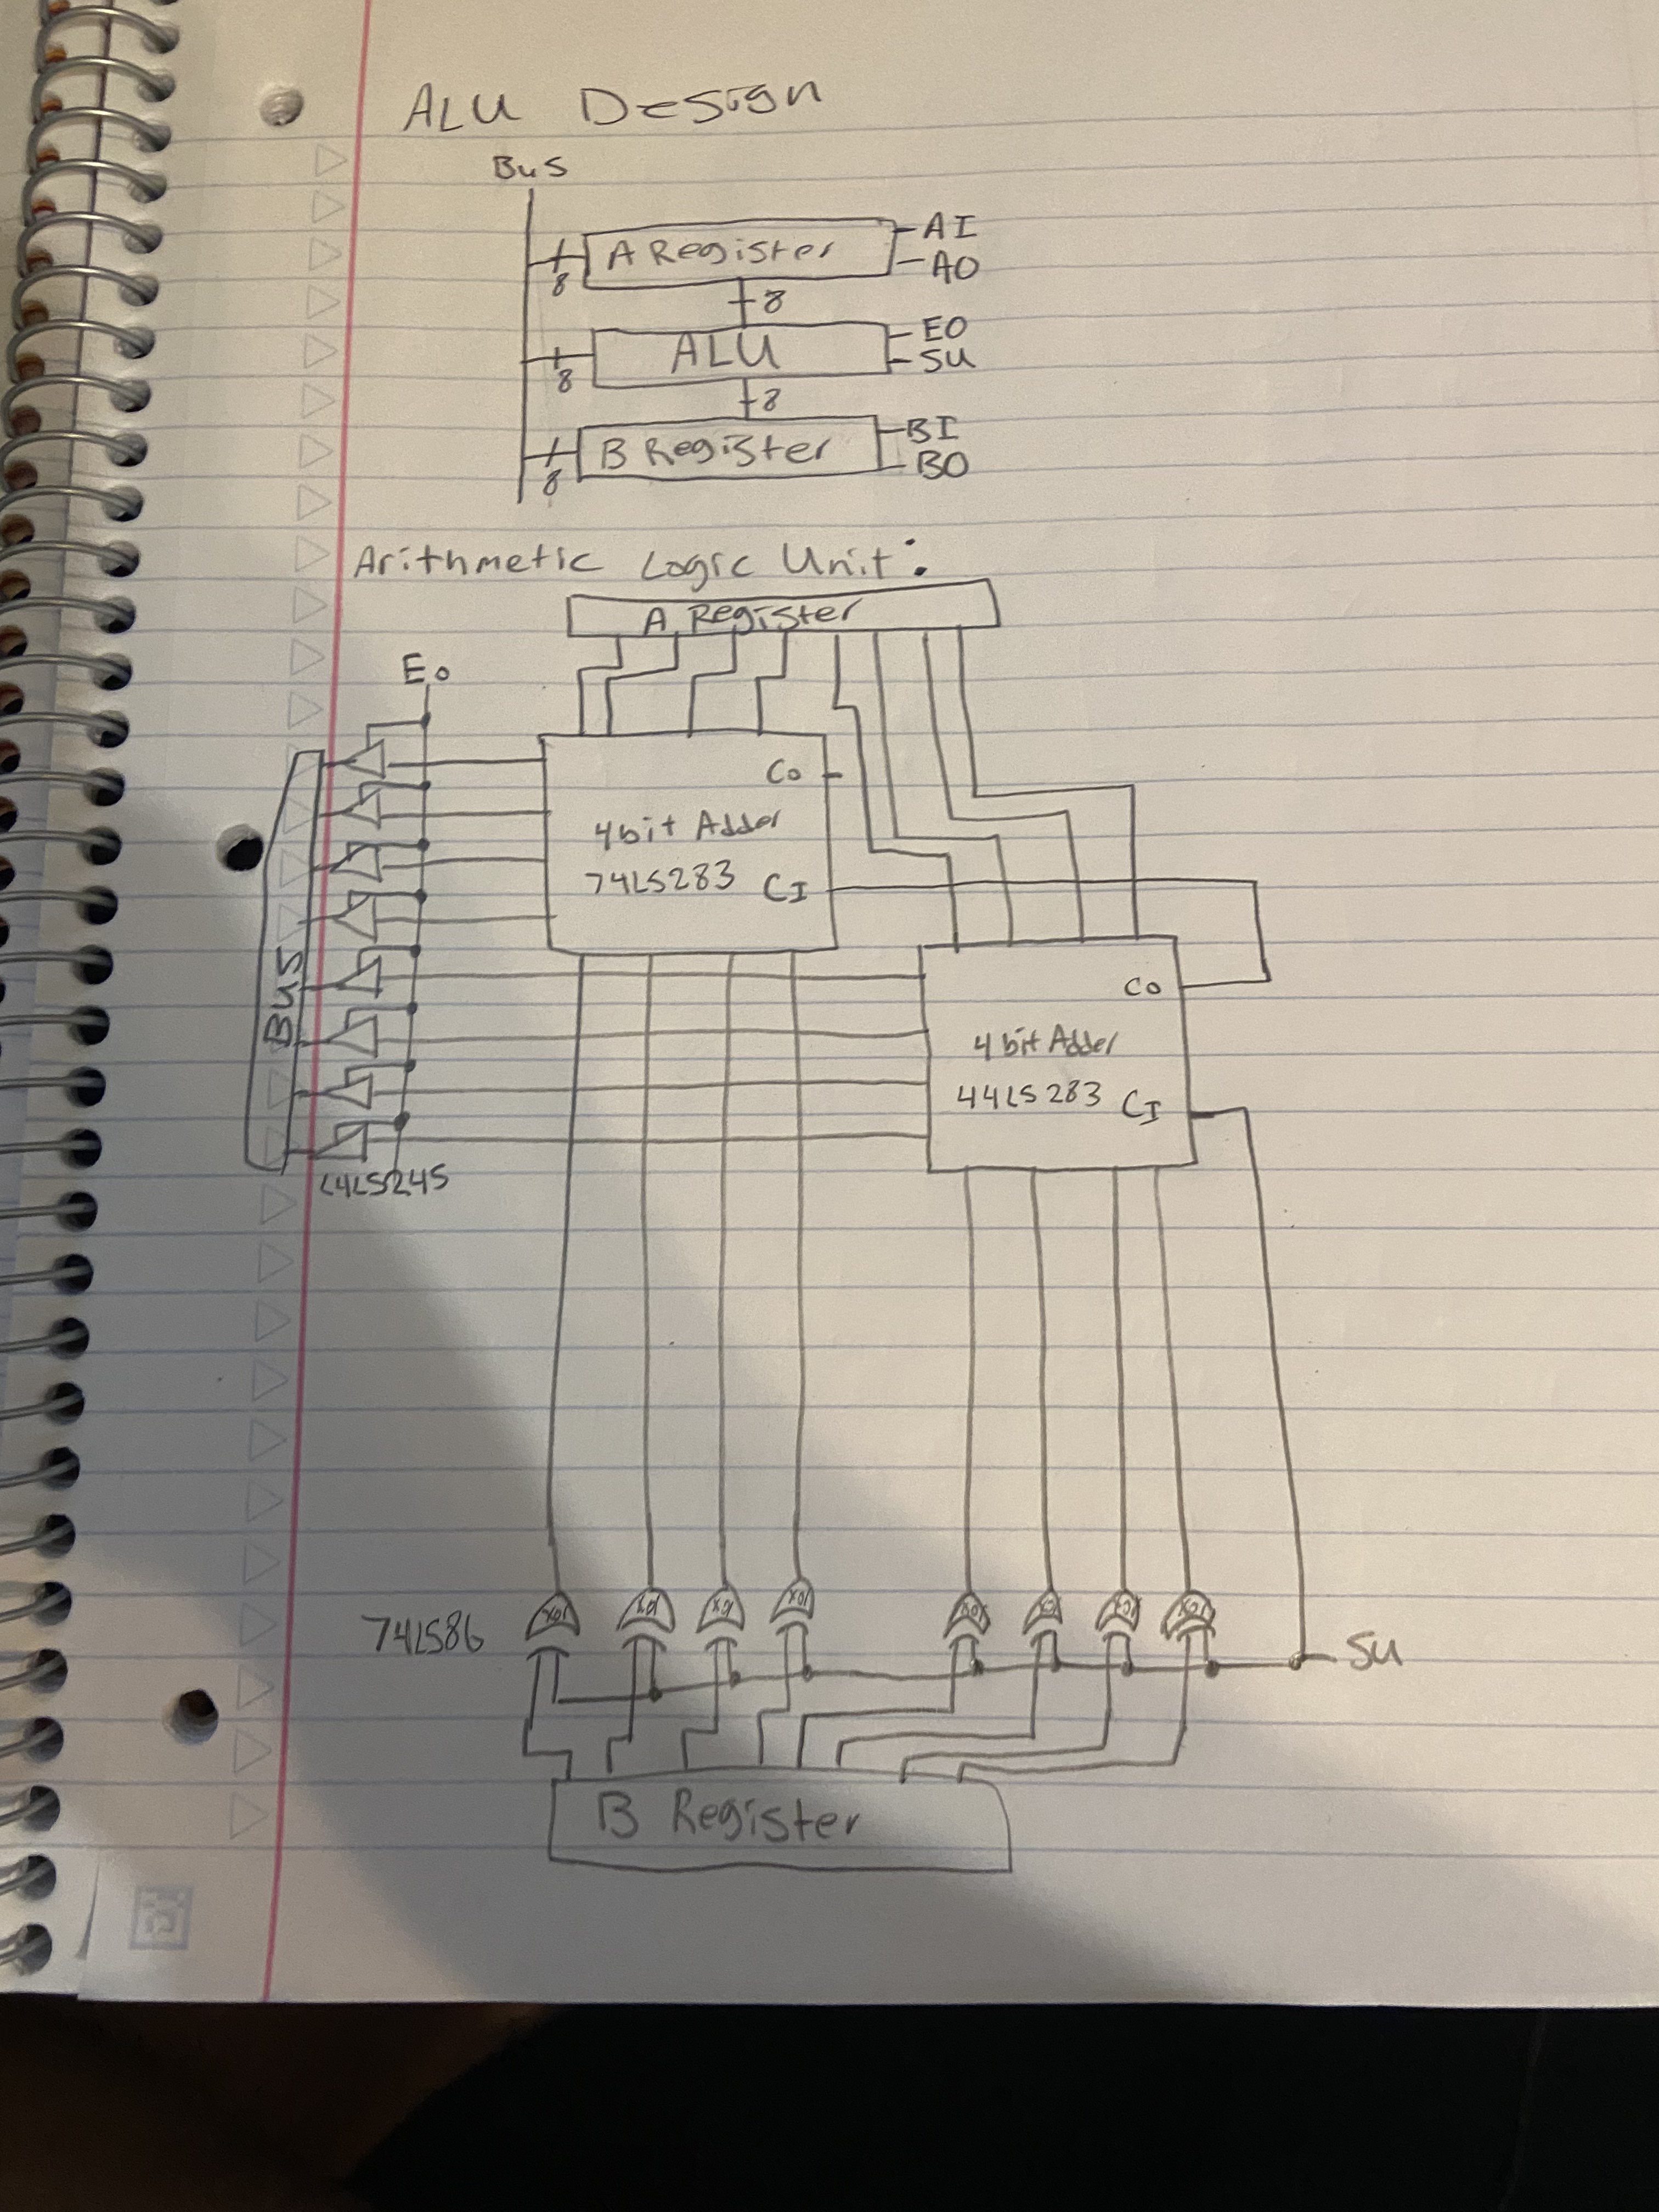 ALU Design
Bus
A Register
AI
AO
8
8
ALU
EO
SU
8
8
B Register
BI
BO
8
Arithmetic Logic Unit:
A Register
Eo
Co
4bit Adder
74LS283 CI
Bus
Co
4 bit Adder
44LS283 CI
L4LS245
74LS86
XOR
XOR
XOR
XOR
XOR
XOR
XOR
XOR
SU
B Register